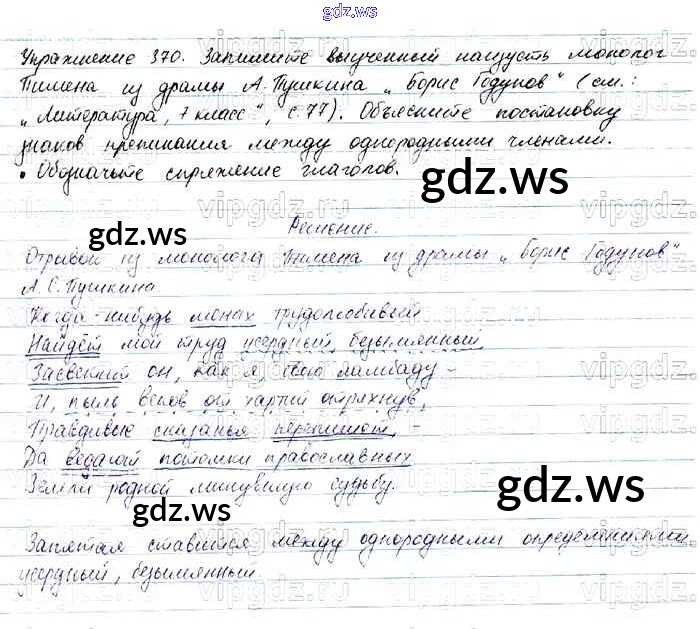 gdz.ws
Упражнение 370. Запишите выученный наизусть монолог
Пимена из драмы А. Пушкина „Борис Годунов“ (см.:
„Литература, 7 класс“, с. 77). Объясните постановку
знаков препинания между однородными членами.
• Обозначьте спряжение глаголов.
gdz.ws
gdz.ws
Решение.
Отрывок из монолога Пимена из драмы „Борис Годунов“
А. С. Пушкина
Когда-нибудь монах трудолюбивый
Найдёт мой труд усердный, безымянный,
Засветит он, как я, свою лампаду –
И, пыль веков от хартий отряхнув,
Правдивые сказанья перепишет, –
Да ведают потомки православных
Земли родной минувшую судьбу.
gdz.ws
gdz.ws
Запятая ставится между однородными определениями
усердный, безымянный.